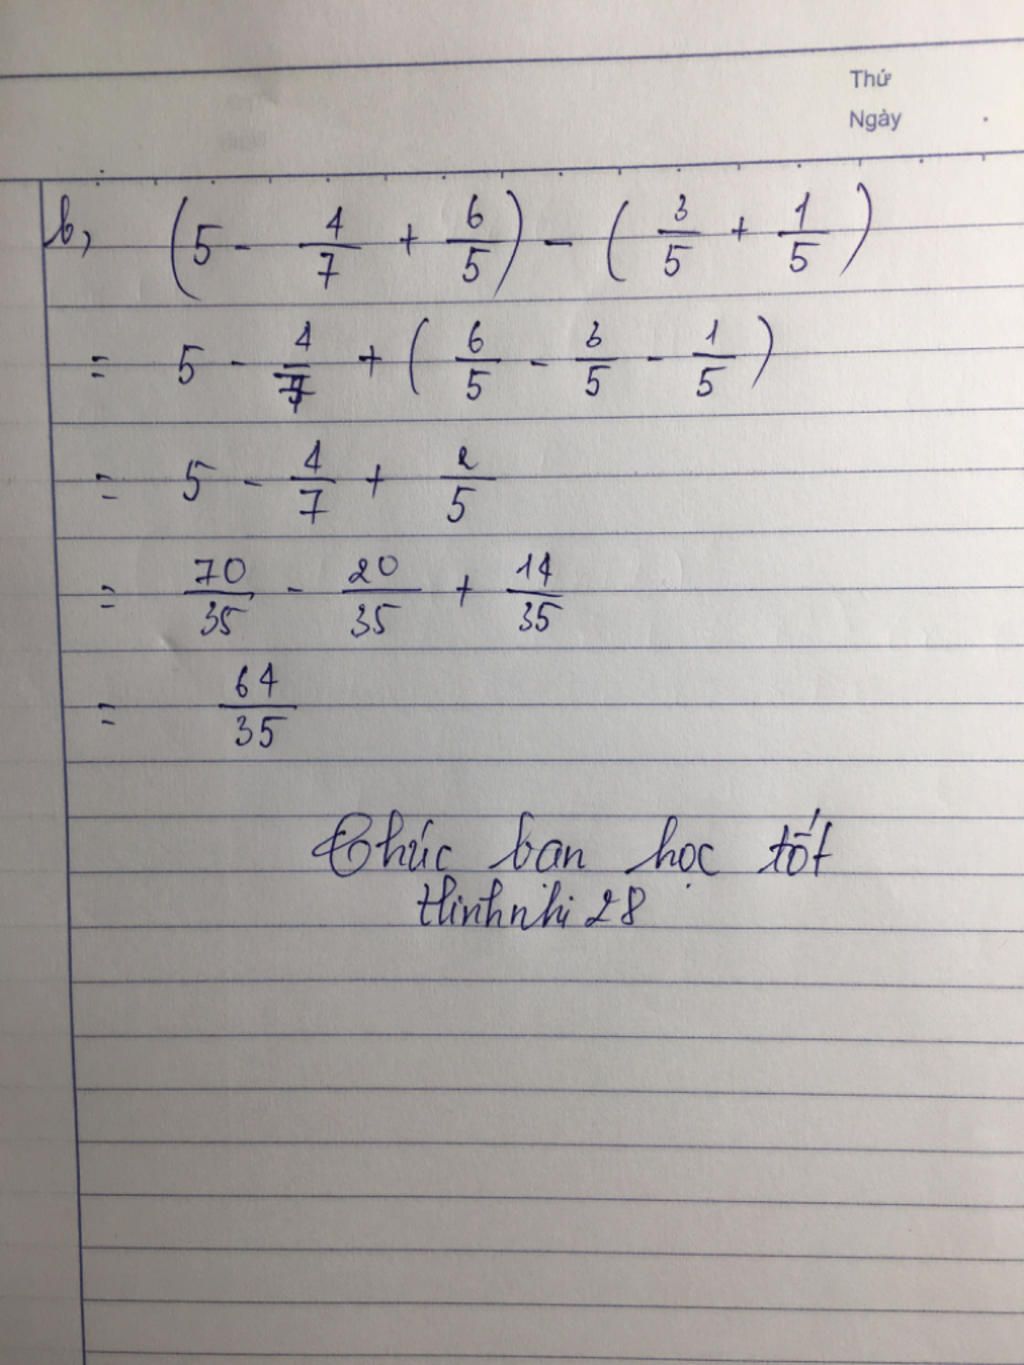 Thứ
Ngày
b, (5 - 4/7 + 6/5) - (3/5 + 1/5)
= 5 - 4/7 + (6/5 - 3/5 - 1/5)
= 5 - 4/7 + 2/5
= 70/35 - 20/35 + 14/35
= 64/35
Chúc bạn học tốt
thinhnhi 28